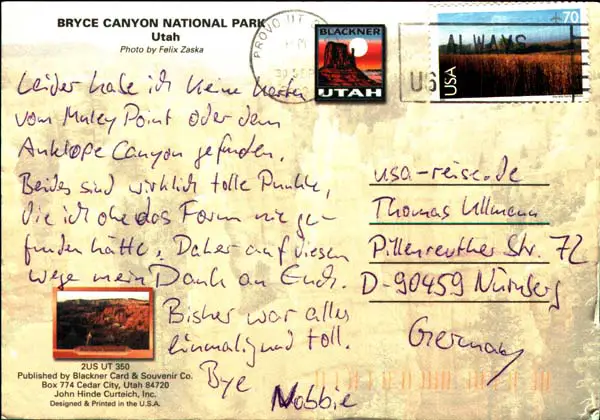 BRYCE CANYON NATIONAL PARK
Utah
Photo by Felix Zaska
PROVO UT
BLACKNER
UTAH
ALWAYS
US
70
USA
Leider habe ich keine Karten
vom Muley Point oder dem
Anklope Canyon gefunden.
Beides sind wirklich tolle Punkte,
die ich ohe das Forum nie ge-
funden hätte. Daher auf diesem
wege mein Dank an Euch.
Bisher war alles
einmalig und toll.
Bye
Nobbie
usa-reise.de
Thomas Ullmann
Pillenreuther Str. 72
D-90459 Nürnberg
Germany
2US UT 350
Published by Blackner Card & Souvenir Co.
Box 774 Cedar City, Utah 84720
John Hinde Curteich, Inc.
Designed & Printed in the U.S.A.